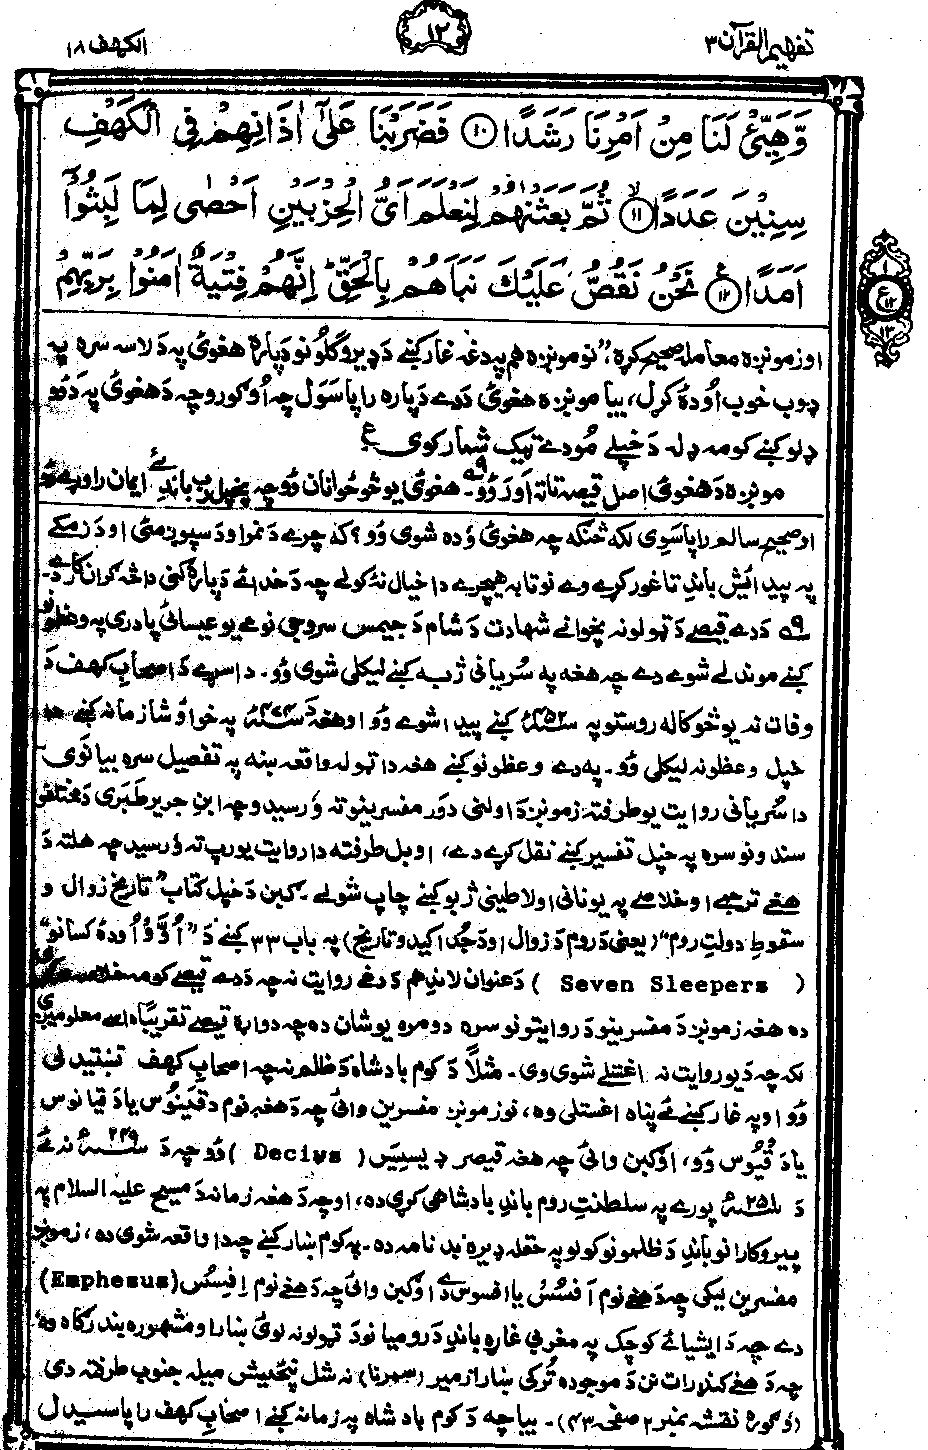 تفهيم القرآن ٣
١٢
الكهف ١٨
وَّهَيِّئْ لَنَا مِنْ اَمْرِنَا رَشَدًا ١٠ فَضَرَبْنَا عَلٰۤى اٰذَانِهِمْ فِى الْكَهْفِ
سِنِيْنَ عَدَدًا ١١ ثُمَّ بَعَثْنٰهُمْ لِنَعْلَمَ اَىُّ الْحِزْبَيْنِ اَحْصٰى لِمَا لَبِثُوْۤا
اَمَدًا ١٢ نَحْنُ نَقُصُّ عَلَيْكَ نَبَاَهُمْ بِالْحَقِّ اِنَّهُمْ فِتْيَةٌ اٰمَنُوْا بِرَبِّهِمْ
ع
اوزمونږه معامله صحيح كړه،" نو مونږه هم په دغه غار كښے دَ ډيرو كلونو دَپاره هغوئ په دَلاسه سره په
ډوب خوب اُودهٔ كړل، بيا مونږه هغوئ دَدے دَپاره راپاسَول چه اُوګورو چه دَ هغوئ په دَوو
ډلو كښے كومه ډله دَ خپلے مُودے ټيک شمار كوى
مونږه دَ هغوئ اصل قيصه تا ته اَوروُو. هغوئ يو څو ځوانان وُو چه په خپل رب باندِ ئے ايمان راوړے وُو
اوصحيح سالم راپاسَوى لكه څنګه چه هغوئ وُده شوى وُو؟ كهٔ چرے دَ نمر اودَ سپوږمئ اودَ زمكے
په پيدائيش باندِ تا غور كړے وے نو تا به هيچرے دا خيال نهٔ كولے چه دَ خدائے دَپاره كنى داڅه ګران كار دے.
٩ دَدے قيصے دَ ټولو نه پخوانے شهادت دَ شام دَ جيمس سروجى نومے يو عيسائى پادرى په وعظونو
كښے موندلے شوے دے چه هغه په سُريانى ژبه كښے ليكلى شوى وُو. داسړے دَ اصحابِ كهف دَ
وفات نه يو څو كاله روستو په سنه ۴۵۲ء كښے پيدا شوے وُو او هغهٔ دَ سنه ۴۷۴ء په خوا و شا زمانه كښے
خپل وعظونه ليكلى وُو. په دے وعظونو كښے هغه دا ټوله واقعه ښه په تفصيل سره بيانَوى
دا سُريانى روايت يو طرفته زمونږ دَ اولنى دَور مفسرينو ته وُرسيدو چه ابنِ جرير طَبرى دَ مختلفو
سندونو سره په خپل تفسير كښے نقل كړے دے، او بل طرفته دا روايت يورپ ته وُرسيد چه هلته دَ
هغے ترجمے او خلاصے په يونانى او لاطينى ژبو كښے چاپ شولے. ګبن دَ خپل كتاب "تاريخِ زوال و
سقوطِ دولتِ روم" (يعنى دَ روم دَ زوال اودَ ختم كيدو تاريخ) په باب ٣٣ كښے دَ "اُوؤو اُوده كسانو"
( Seven Sleepers ) دَ عنوان لاندِ هم دَ دغے روايت نه چه دَدے قيصے كومه خلاصه
ده هغه زمونږ دَ مفسرينو دَ روايتونو سره دومره يو شان ده چه دواړه قيصے تقريبًا
لكه چه دَ يو روايت نه اغستلے شوى وى. مثلاً دَ كوم بادشاه دَ ظلم نه چه اصحابِ كهف تښتيدلى
وُو او په غار كښے ئے پناه اغستلى وه، نو زمونږ مفسرين وائى چه دَ هغه نوم دقينُوس يا دقيانوس
يا دَقيُوس وُو، او ګبن وائى چه هغه قيصر ډيسيَس ( Decius ) وُو چه دَ سنه ۲۴۹ء نه ئے
دَ سنه ۲۵۱ء پورے په سلطنتِ روم باندِ بادشاهى كړى ده، او چه دَ هغه زمانه دَ مسيح عليه السلام په
پيروكارانو باندِ دَ ظلمونو كولو په حقله ډيره بدنامه ده. په كوم ښار كښے چه دا واقعه شوى ده، زمونږ
مفسرين ليكى چه دَ هغے نوم اَفسُسُ يا افسوس دے او ګبن وائى چه دَ هغے نوم اِفيسُس (Emphesus)
دے چه دَ ايشيائے كوچک په مغربى غاړه باندِ دَ روميانو دَ ټولو نه لوئ ښار او مشهوره بندرګاه وه،
چه دَ هغے كنډرات نن دَ موجوده تُركى ښار ازمير (سمرنا) نه شل پنځيش ميله جنوب طرفته دى
(وُګوره نقشه نمبر ٢ صفحه ۴۳). بيا چه دَ كوم بادشاه په زمانه كښے اصحابِ كهف راپاسيدل